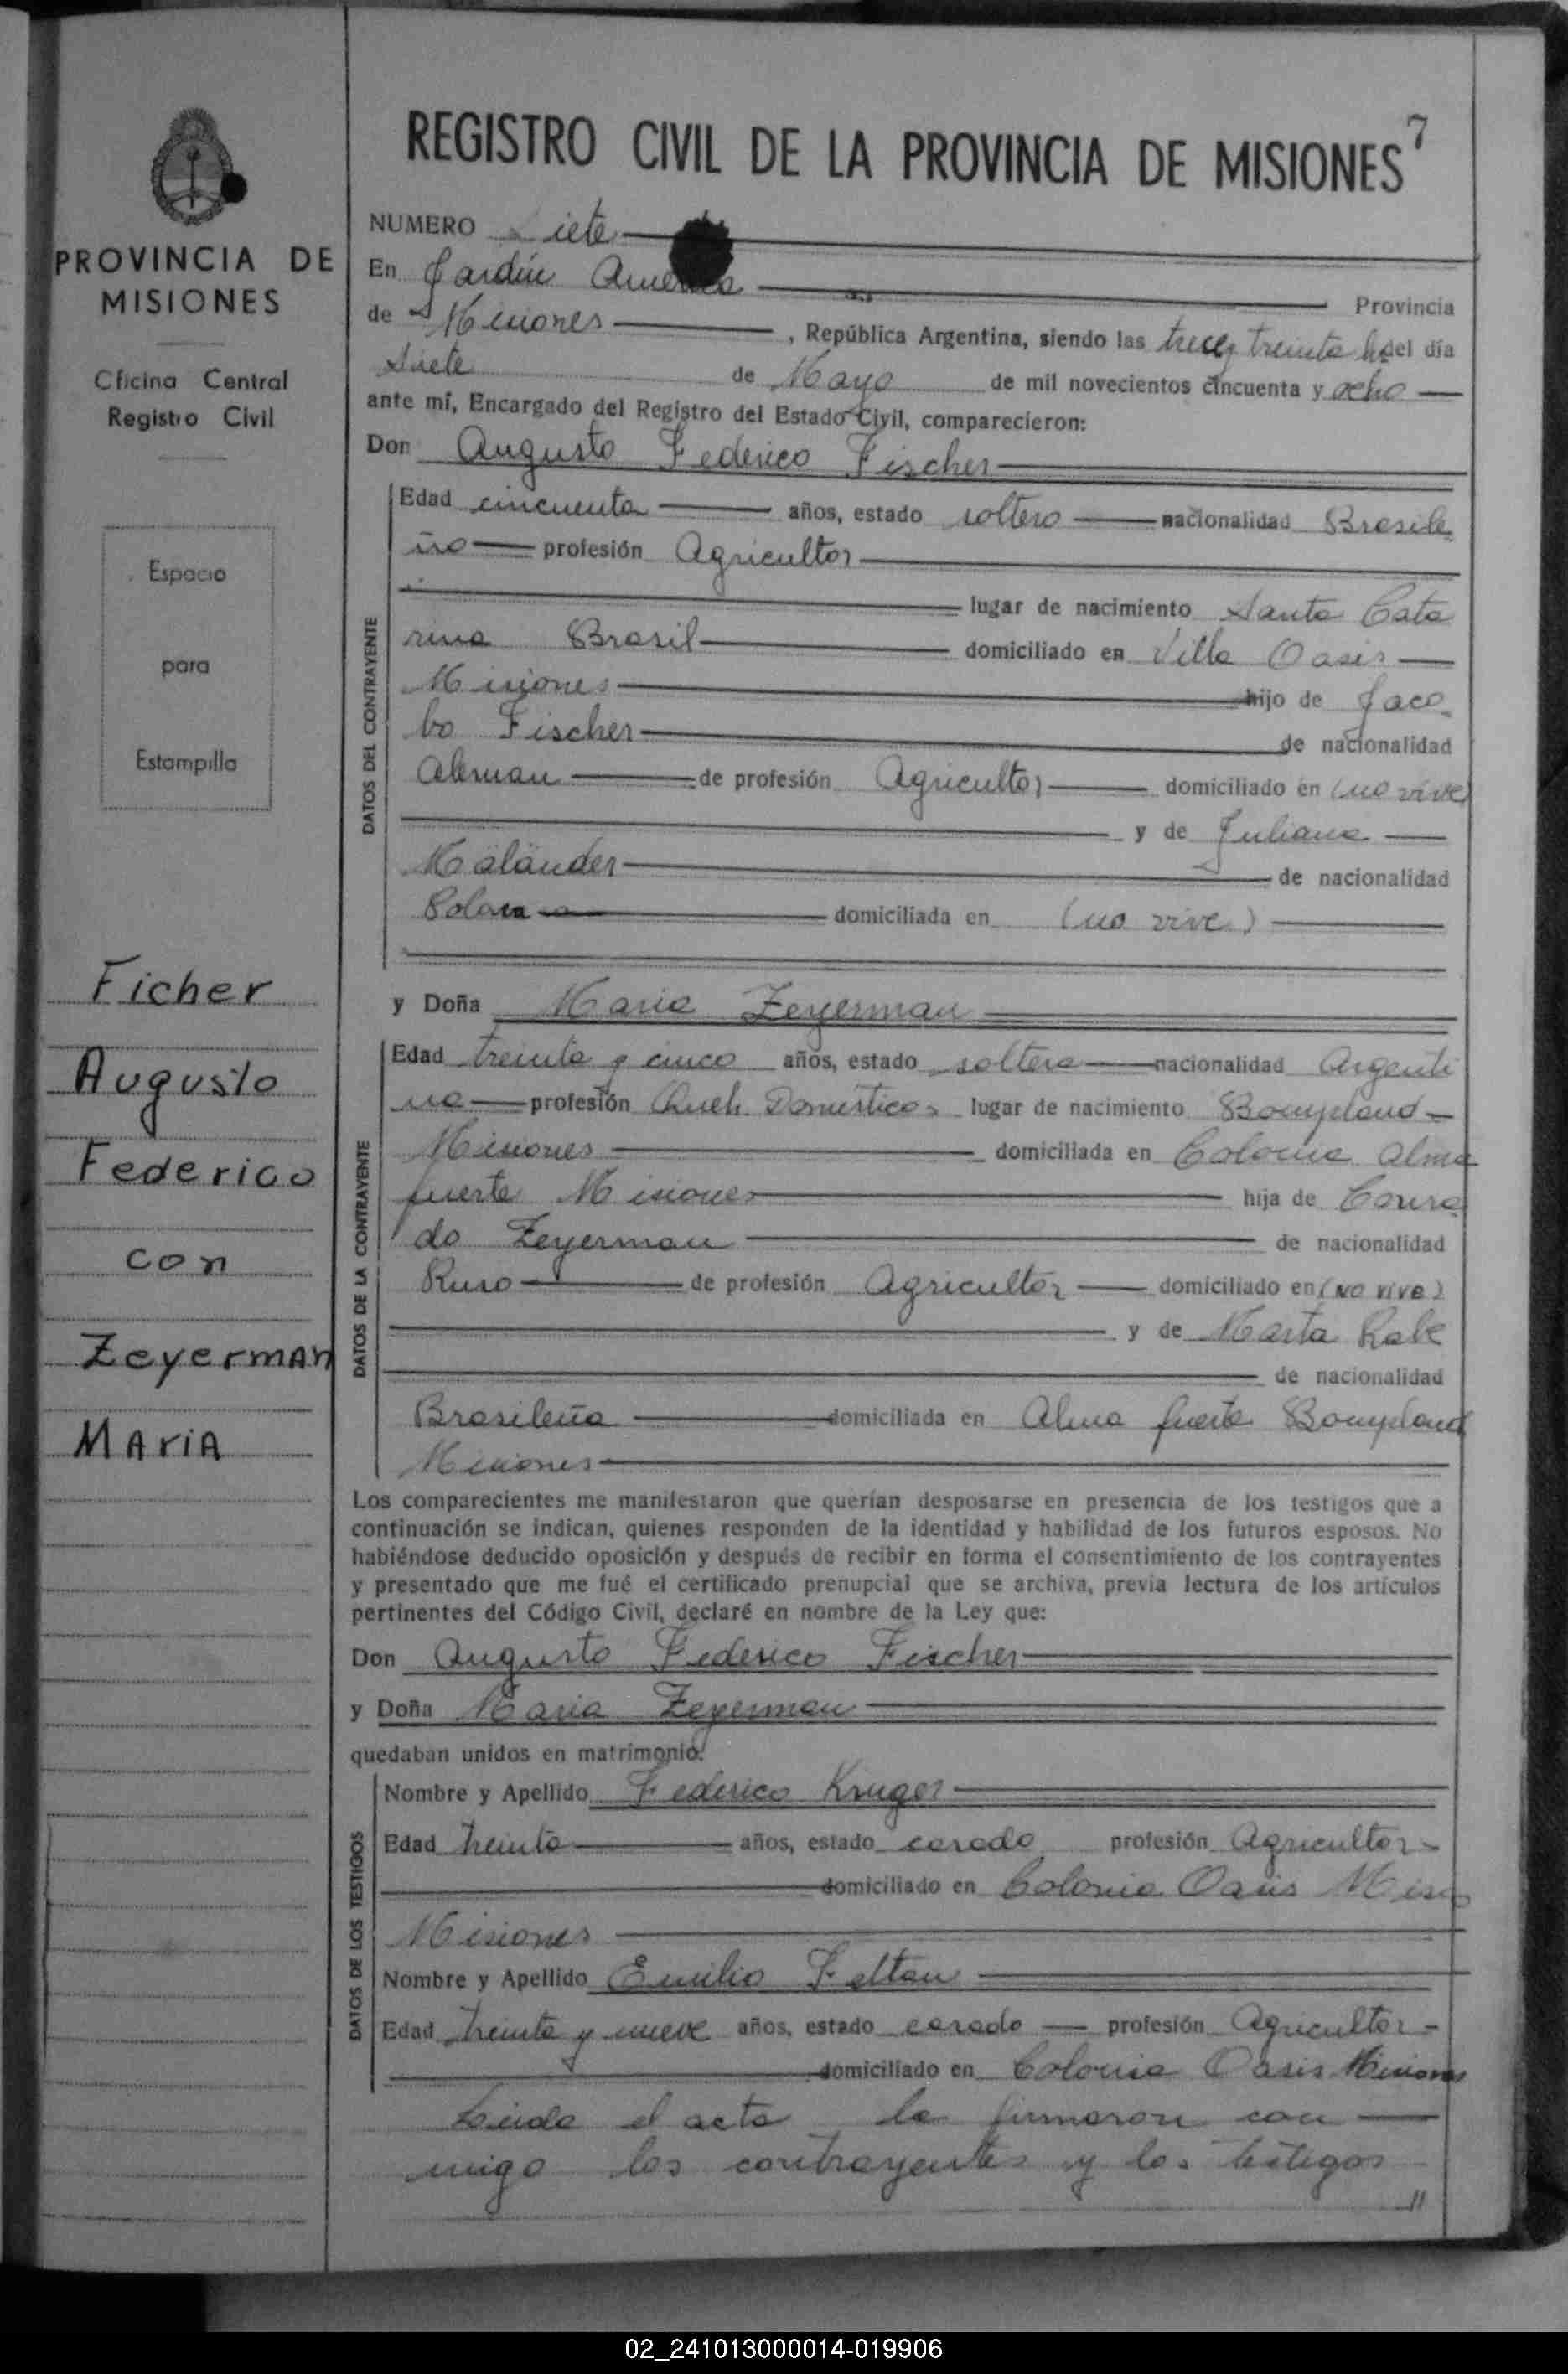 REGISTRO CIVIL DE LA PROVINCIA DE MISIONES 7
PROVINCIA DE
MISIONES
Oficina Central
Registro Civil
Espacio
para
Estampilla
Ficher
Augusto
Federico
con
Zeyerman
MAriA
NUMERO Siete
En Jardín America Provincia
de Misiones, República Argentina, siendo las trece y treinta hs del día
Siete de Mayo de mil novecientos cincuenta y ocho
ante mí, Encargado del Registro del Estado Civil, comparecieron:
Don Augusto Federico Fischer
DATOS DEL CONTRAYENTE
Edad cincuenta años, estado soltero nacionalidad Brasile
ño profesión Agricultor
lugar de nacimiento Santa Cata
rina Brasil domiciliado en Villa Oasis
Misiones hijo de Jaco
bo Fischer de nacionalidad
Aleman de profesión Agricultor domiciliado en (no vive)
y de Juliana
Maländer de nacionalidad
Polaca domiciliada en (no vive)
y Doña Maria Zeyerman
DATOS DE LA CONTRAYENTE
Edad treinta y cinco años, estado soltera nacionalidad Argenti
na profesión Queh. Domesticos lugar de nacimiento Bompland
Misiones domiciliada en Colonia Alma
fuerte Misiones hija de Conra
do Zeyerman de nacionalidad
Ruso de profesión Agricultor domiciliado en (no vive)
y de Marta Rabe
de nacionalidad
Brasileña domiciliada en Alma fuerte Bompland
Misiones
Los comparecientes me manifestaron que querían desposarse en presencia de los testigos que a
continuación se indican, quienes responden de la identidad y habilidad de los futuros esposos. No
habiéndose deducido oposición y después de recibir en forma el consentimiento de los contrayentes
y presentado que me fué el certificado prenupcial que se archiva, previa lectura de los artículos
pertinentes del Código Civil, declaré en nombre de la Ley que:
Don Augusto Federico Fischer
y Doña Maria Zeyerman
quedaban unidos en matrimonio.
DATOS DE LOS TESTIGOS
Nombre y Apellido Federico Kruger
Edad treinta años, estado casado profesión Agricultor
domiciliado en Colonia Oasis Mis
Misiones
Nombre y Apellido Emilio Feltan
Edad treinta y nueve años, estado casado profesión Agricultor
domiciliado en Colonia Oasis Misiones
Leida el acta la firmaron con
migo los contrayentes y los testigos
//
02_241013000014-019906